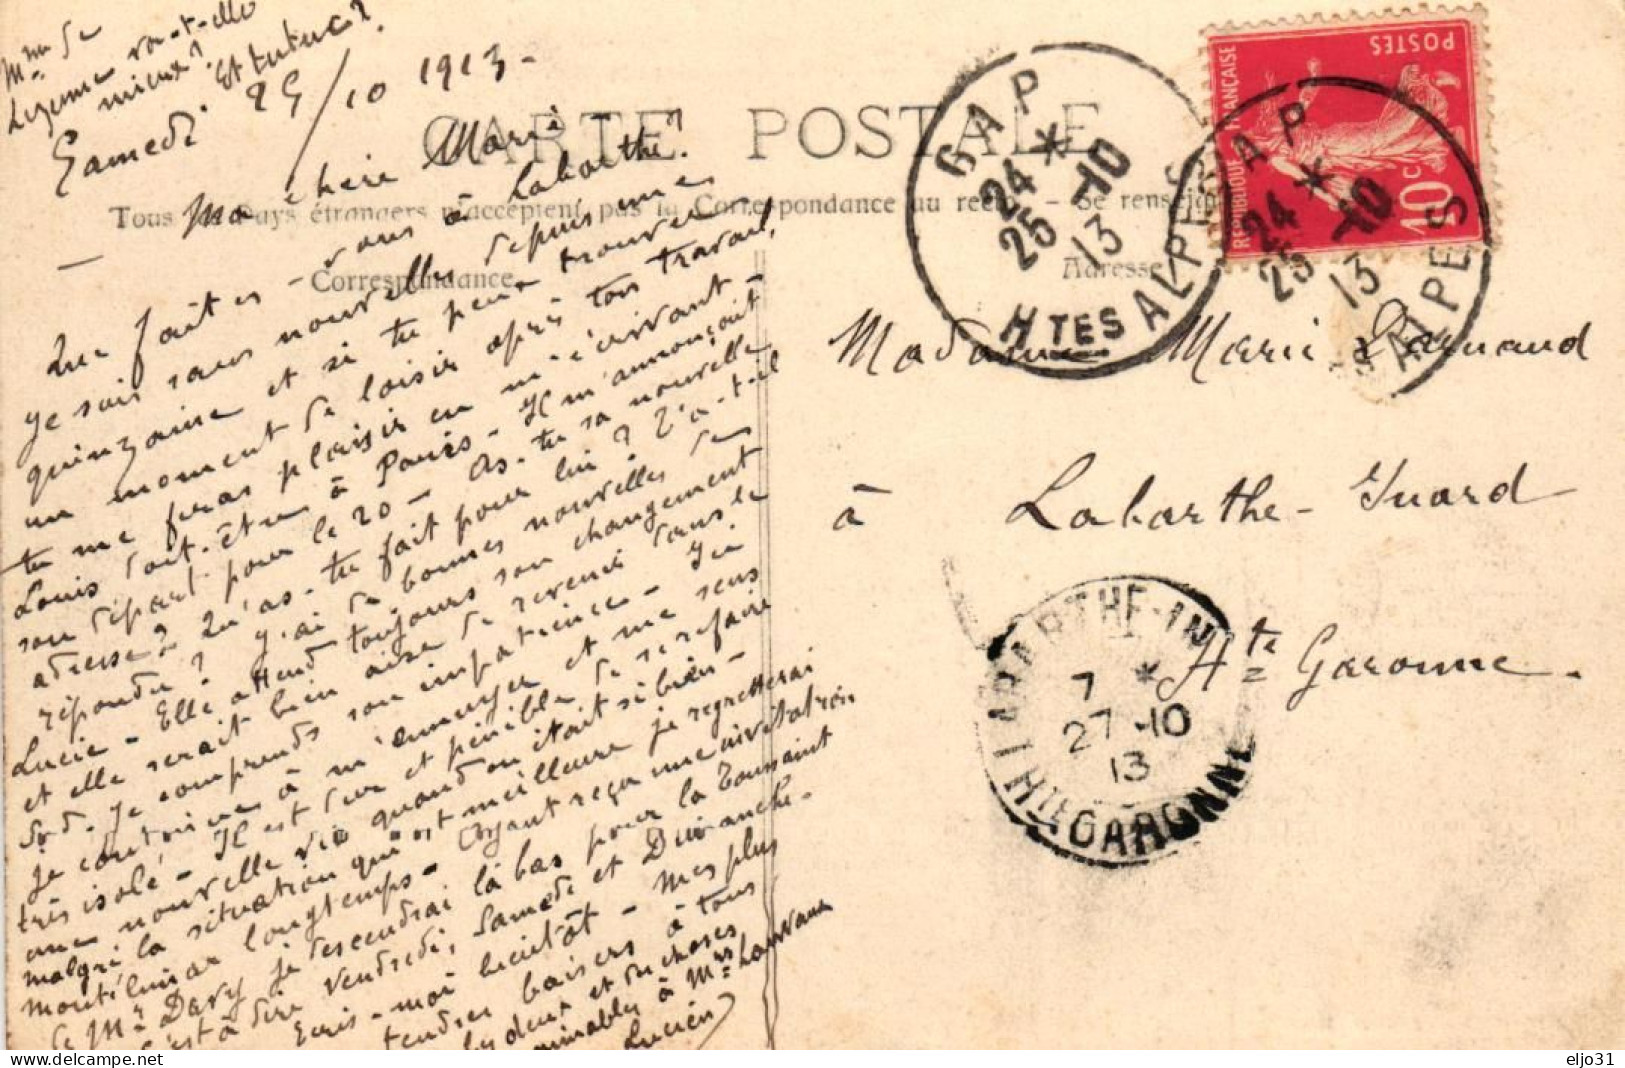 Mme de
Lezenne va-t-elle
mieux? Et tutuc?
Samedi 25/10 1913 -
CARTE POSTALE
Tous les Pays étrangers n'acceptent pas la Correspondance au recto. - Se renseigner
Correspondance
Adresse
Ma chère Marie
Que faites - vous à Labarthe?
Je suis sans nouvelles depuis une
quinzaine et si tu peux trouver
un moment de loisir après ton travail,
tu me feras plaisir en m'écrivant -
Louis doit-être à Paris - Il m'annonçait
son départ pour le 20 - As-tu sa nouvelle
adresse? Qu'as-tu fait pour lui? T'a-t-il
répondu? J'ai de bonnes nouvelles de
Lucie - Elle attend toujours son changement
et elle serait bien aise de revenir dans le
Sud. Je comprends son impatience - Ici
je continue à m'ennuyer et me sens
très isolé - Il est dur et pénible de se refaire
une nouvelle vie quand on était si bien -
malgré la situation qui est meilleure je regretterai
Montélimar longtemps - Ayant reçu une invitation
de Mr Davy je descendrai là bas pour la Toussaint
c'est à dire Vendredi, Samedi et Dimanche -
Ecris-moi bientôt - Mes plus
tendres baisers à tous
les deux et du choses
aimables à Mrs
Lucien
Madame Marie Darnaud
à Labarthe-Inard
Hte Garonne.
POSTES
REPUBLIQUE FRANÇAISE
10c
GAP
24 *
25 -10
13
HTES ALPES
GAP
24 *
25 -10
13
ALPES
LABARTHE-IN
7 *
27 -10
13
HTE GARONNE
delcampe.net
eljo31